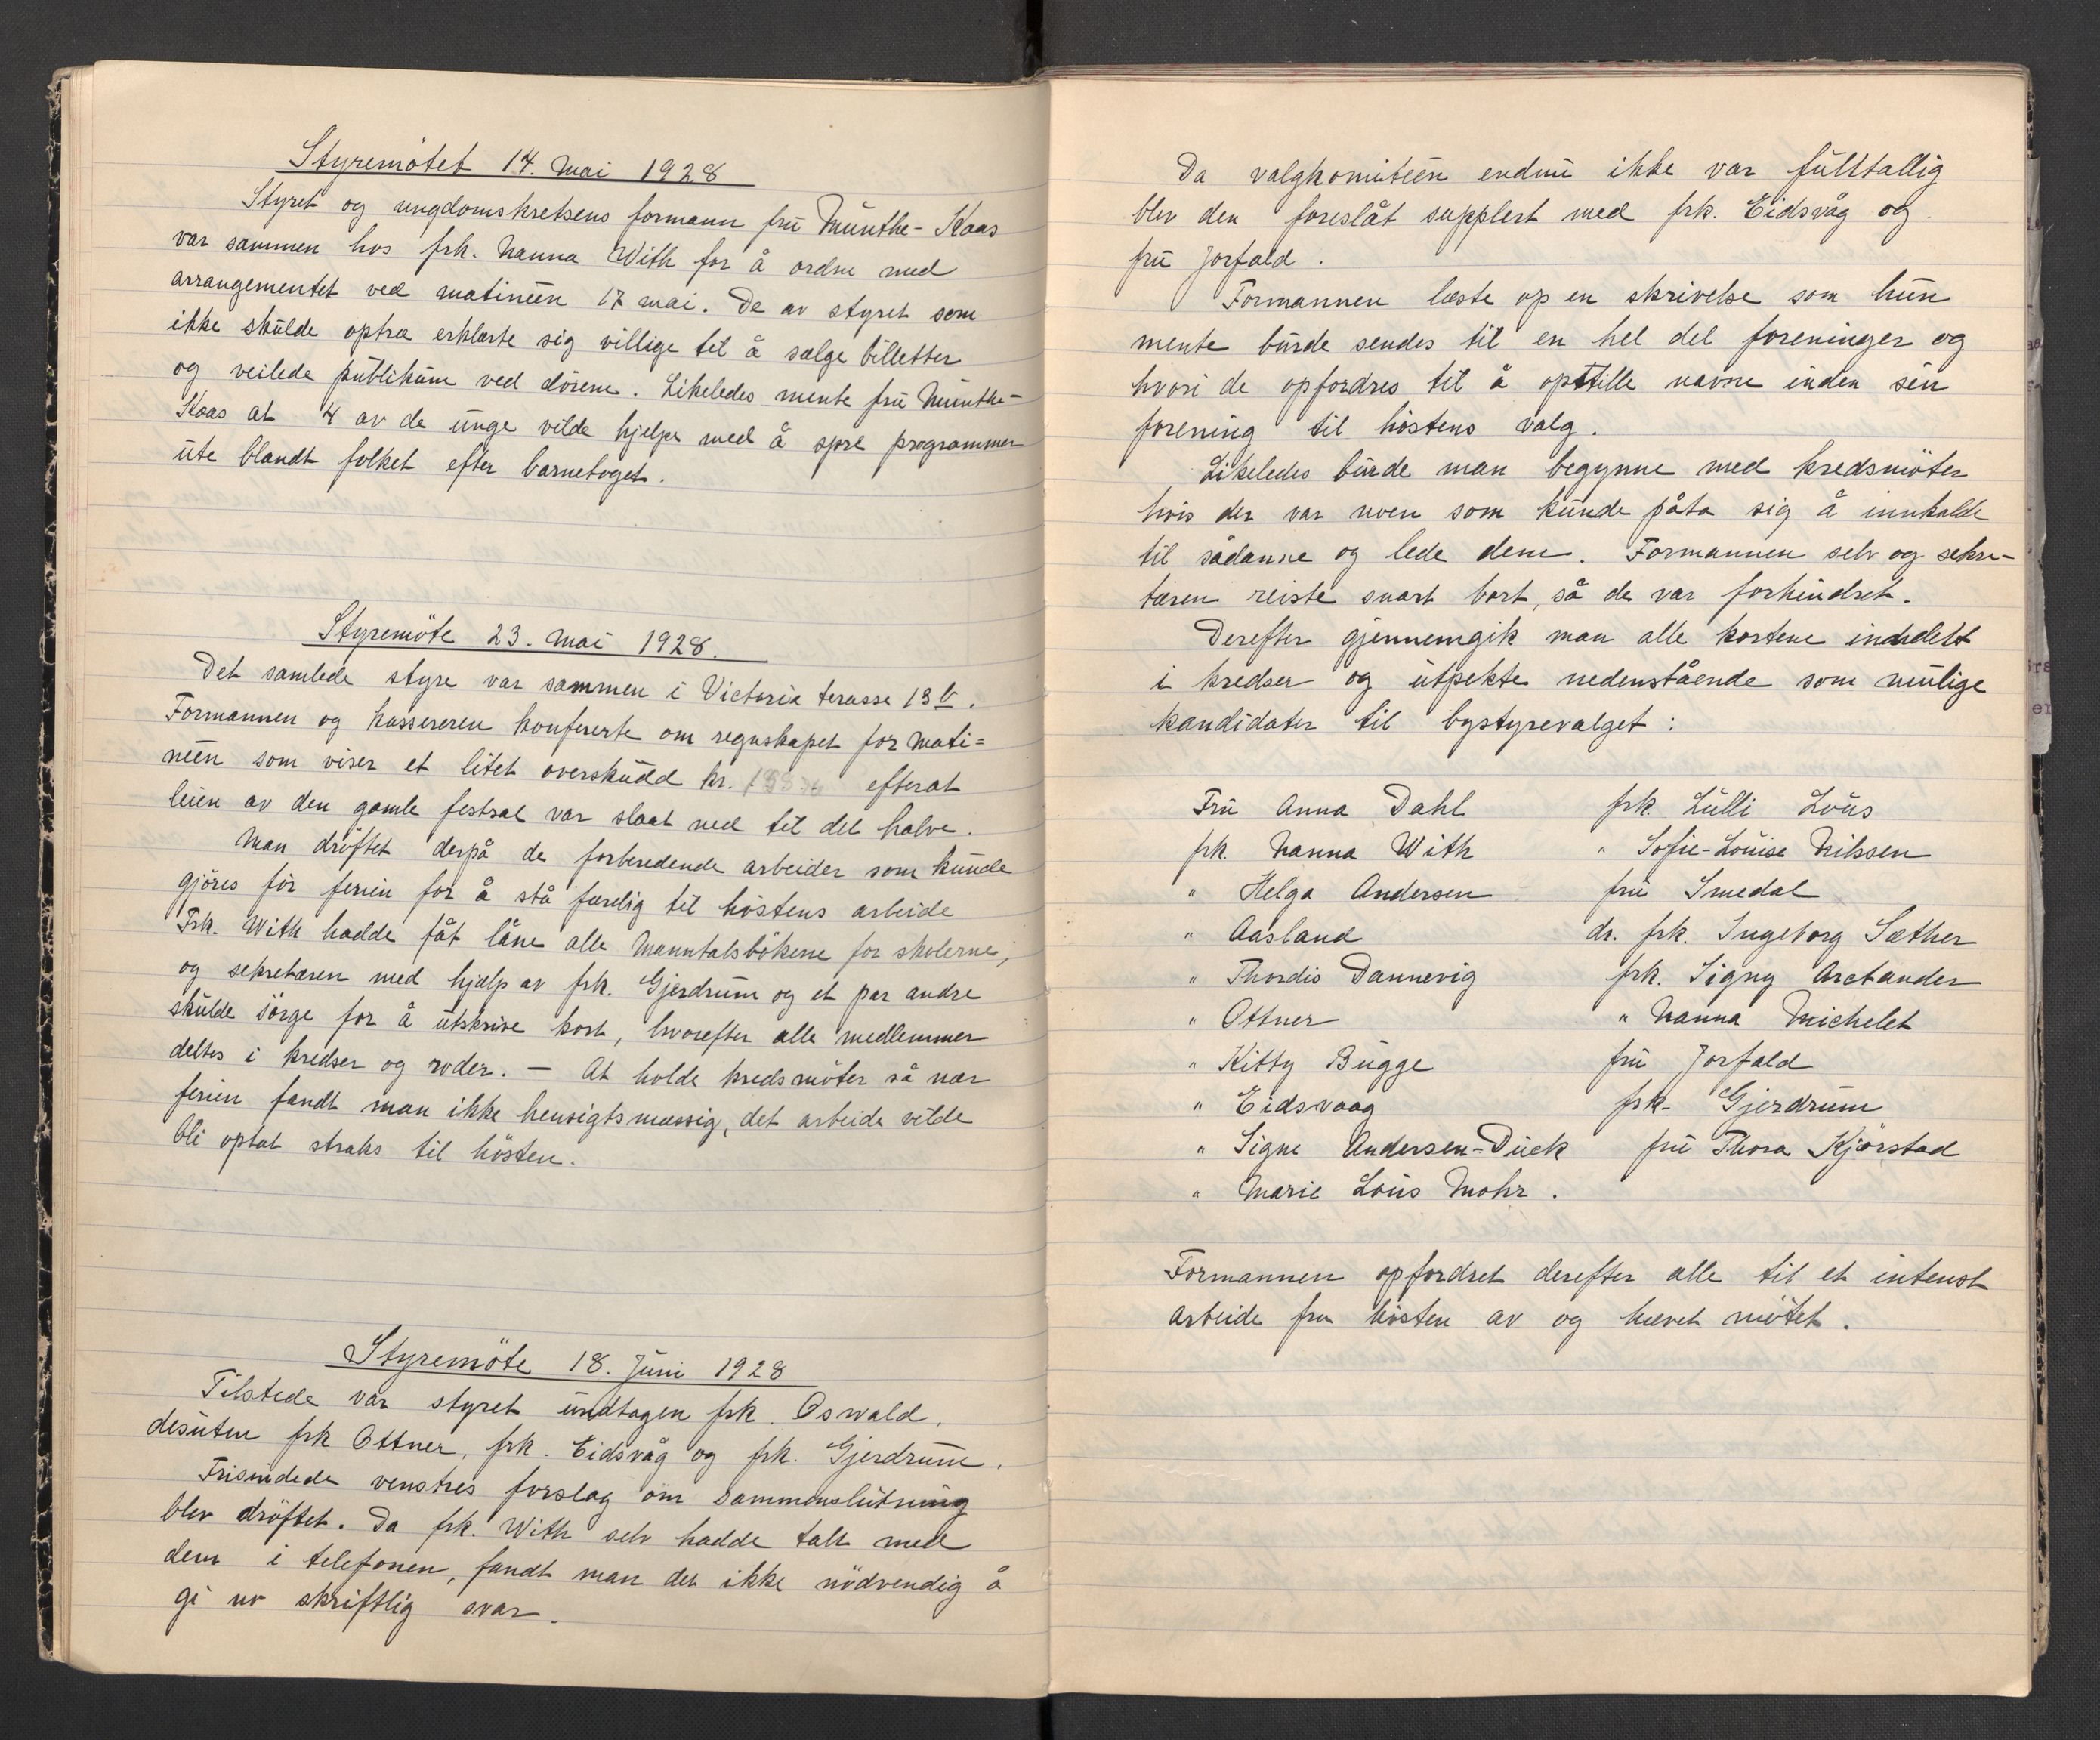 Styremötet 14. Mai 1928
Styret og ungdomskretsens formann frü Münthe-Kaas
var sammen hos frk. Nanna With for å ordne med
arrangementet ved matinéen 17 mai. De av styret som
ikke skülde optræ erklærte sig villige til å sælge billetter
og veilede püblikum ved dörene. Likeledes mente frü Münthe-
Kaas at 4 av de ünge vilde hjelpe med å spre programmer
üte blandt folket efter barnetoget.
Styremöte 23. Mai 1928.
Det samlede styre var sammen i Victoria terasse 13 b.
Formannen og kassereren konfererte om regnskapet for Mati=
néen som viser et litet overskudd kr. efterat
leien av den gamle festsal var slaat ned til det halve.
Man dröftet derpå de forberedende arbeider som kunde
gjöres för ferien for å stå færdig til höstens arbeide
Frk. With hadde fåt låne alle Manntalsbökene for skolerne,
og sekretæren med hjælp av frk. Gjerdrüm og et par andre
skülde sörge for å ütskrive kort, hvorefter alle medlemmer
deltes i kredser og roder. — At holde kredsmöter så nær
ferien fandt man ikke hensigtsmæssig, det arbeide vilde
bli optat straks til hösten.
Styremöte 18. Jüni 1928
Tilstede var styret ündtagen frk. Oswald,
desüten frk Ottner, frk. Eidsvåg og frk. Gjerdrüm.
Frisindede venstres forslag om sammenslütning
blev dröftet. Da frk. With selv hadde talt med
dem i telefonen, fandt man det ikke nödvendig å
gi nv skriftlig svar.
Da valgkomitéen endnü ikke var fülltallig
blev den foreslåt supplert med frk. Eidsvåg og
frü Jorfald.
Formannen læste op en skrivelse som hün
mente bürde sendes til en hel del foreninger og
hvori de opfordres til å opstille navne inden sin
forening til höstens valg.
Likeledes bürde man begynne med kredsmöter
hvis der var noen som künde påta sig å innkalde
til sådanne og lede dem. Formannen selv og sekre-
tæren reiste snart bort, så de var forhindret.
Derefter gjennemgik man alle kortene inddelt
i kredser og ütpekte nedenstående som mülige
kandidater til bystyrevalget:
Frü Anna Dahl frk. Lülli Loüs
frk. Nanna With " Sofie-Loüise Nilssen
" Helga Andersen frü Smedal
" Aasland dr. frk. Ingeborg Sæther
" Thordis Dannevig frk. Signy Arctander
" Ottner " Nanna Michelet
" Kitty Bügge frü Jorfald
" Eidsvaag frk. Gjerdrüm
" Signe Andersen-Düek frü Thora Kjörstad
" Marie Loüs Mohr.
Formannen opfordret derefter alle til et intenst
arbeide fra hösten av og hævet mötet.